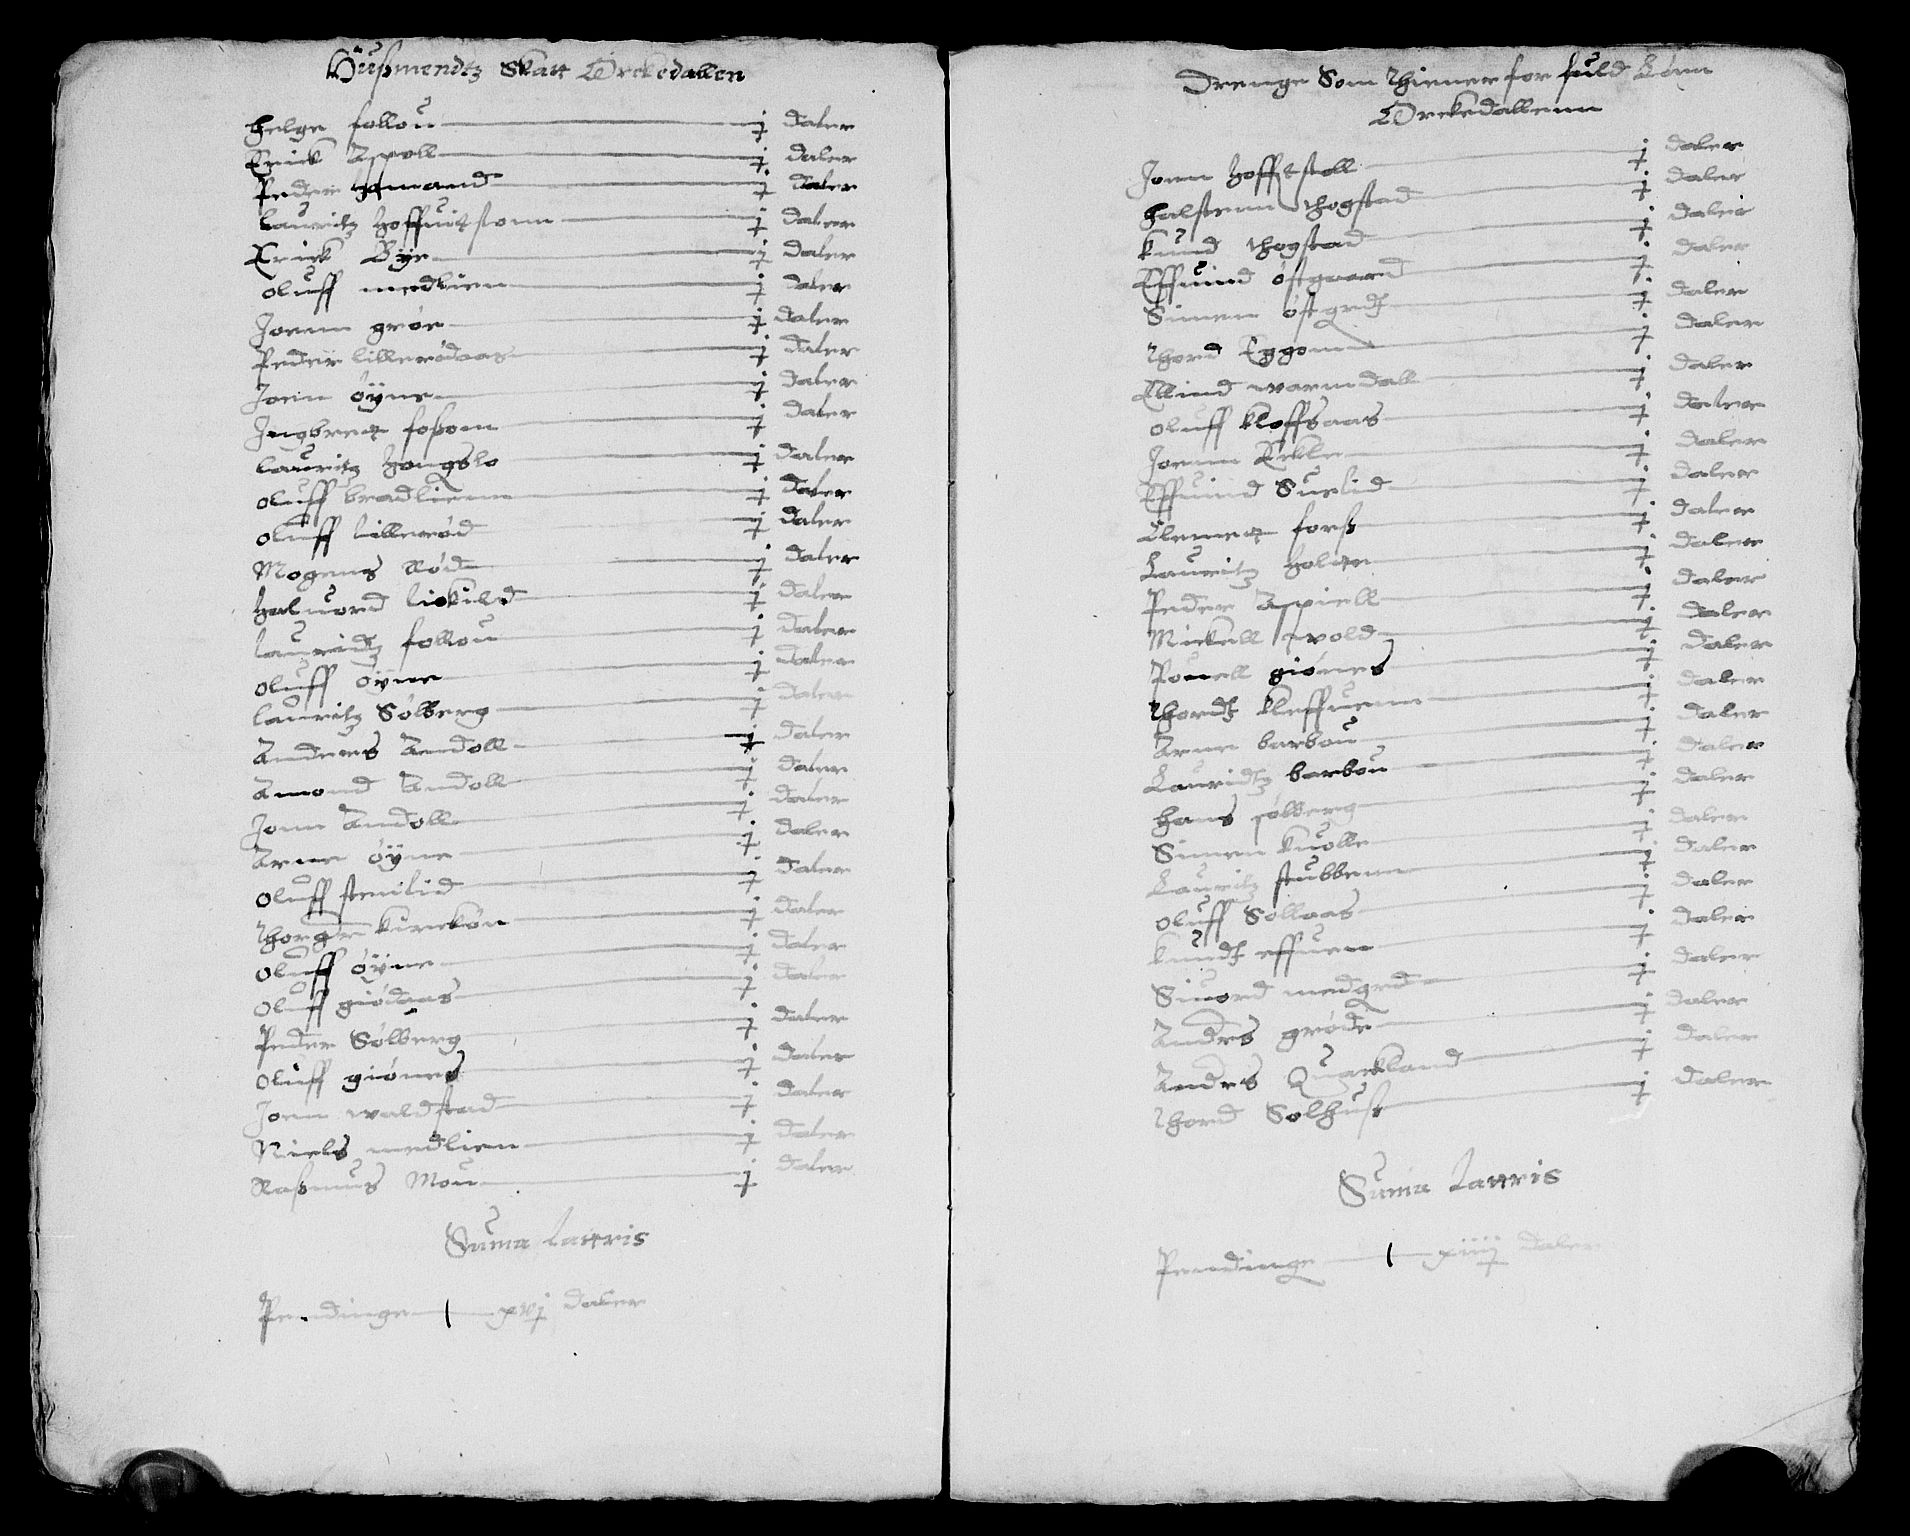 Hußmendtz Skatt Orckedallen
Helge follou j daler
Erick Aspoll j daler
Peder Hamand j daler
Lauritz Hoffuitstonn j daler
Erick Bye j daler
Oluff medlien j daler
Joenn grøe j daler
Peder lillerødaas j daler
Joen øÿne j daler
Ingbret foßom j daler
Lauritz Hongslo j daler
Oluff bradlienn j daler
Oluff lillerød j daler
Mogens Rød j daler
Haluord liekild j daler
Lauridtz follou j daler
Oluff øyne j daler
Lauritz Solberg j daler
Anders Aendoll j daler
Amond Andoll j daler
Jonn Andoll j daler
Arne øÿne j daler
Oluff stenlid j daler
Thorgre kirekøn j daler
Oluff øÿne j daler
Oluff giødaas j daler
Peder Solberg j daler
Oluff giønes j daler
Joen waldstad j daler
Niels medlien j daler
Raßmus Mou j daler
Suma Latteris
Pendinge xvj daler
Drenge Som thiener for fuld Lønn
Orckedallenn
Jonn Hoffstoll j daler
Halstenn thogstad j daler
Knud thogstad j daler
Effuind østgaard j daler
Simen østgrdt j daler
Thord Eggenn j daler
Ellind warmdall j daler
Oluff kloffsaas j daler
Joenn Eckle j daler
Effuind Suelid j daler
Clemett forß j daler
Lauritz Holte j daler
Peder Aspiell j daler
Mickell wold j daler
Pouell giønes j daler
Thordt kleffuenn j daler
Arne barbou j daler
Lauridtz barbou j daler
Hans solberg j daler
Simen kuolle j daler
Lauritz stubbenn j daler
Oluff Sollaas j daler
Knudt effuen j daler
Siuord medgrd j daler
Andrs grøde j daler
Andrs Quackland j daler
Thord Solhuß j daler
Suma Latteris
Pendinge xiiij daler